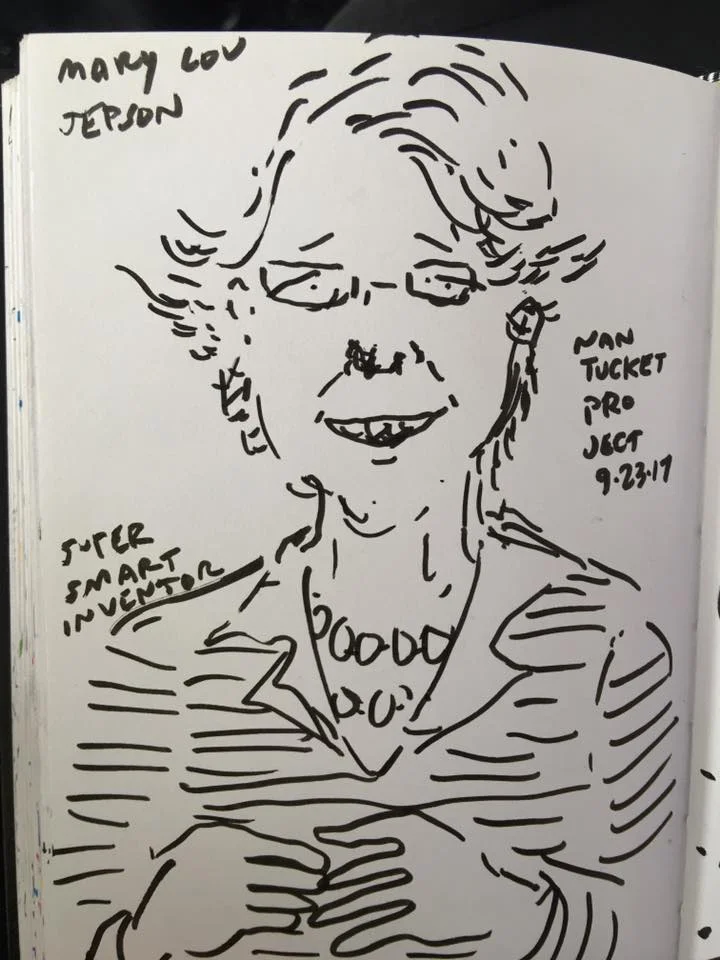 MARY LOU
JEPSON
NAN
TUCKET
PRO
JECT
9.23.17
SUPER
SMART
INVENTOR